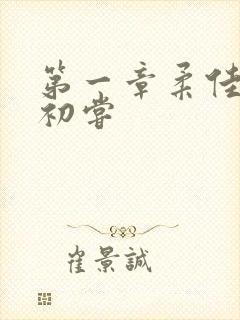 第一章柔佳
初嘗
崔景誠